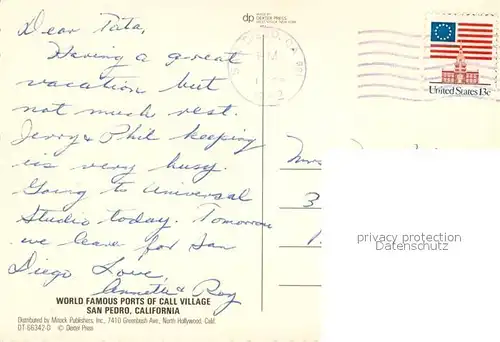 Dear Tata,
Having a great
vacation but
not much rest.
Jerry & Phil keeping
us very busy.
Going to Universal
Studio today. Tomorrow
we leave for San
Diego Love,
Annette & Roy
WORLD FAMOUS PORTS OF CALL VILLAGE
SAN PEDRO, CALIFORNIA
Distributed by Mitock Publishers, Inc., 7410 Greenbush Ave., North Hollywood, Calif.
DT-66342-D © Dexter Press
dp
DEXTER PRESS
CA
PM
United States 13c
Mrs
3
privacy protection
Datenschutz